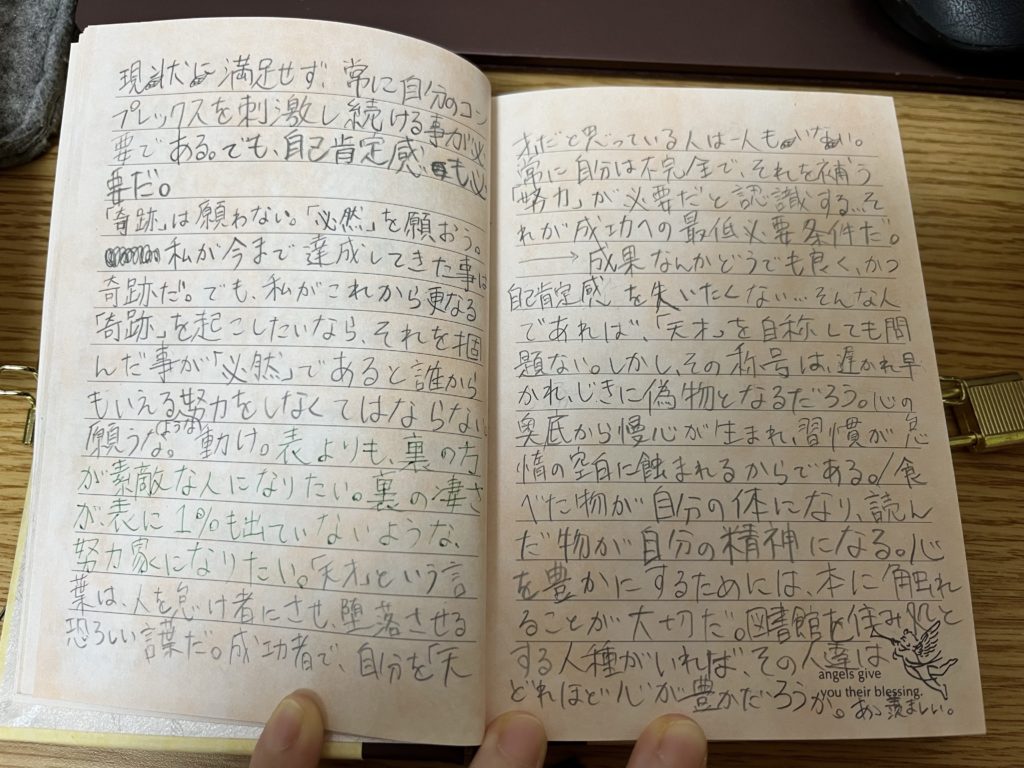 現状に満足せず、常に自分のコン
プレックスを刺激し続ける事が必
要である。でも、自己肯定感も必
要だ。
「奇跡」は願わない。「必然」を願おう。
私が今まで達成してきた事は
奇跡だ。でも、私がこれから更なる
「奇跡」を起こしたいなら、それを掴
んだ事が「必然」であると誰から
もいえるような努力をしなくてはならない。
願うな。動け。表よりも、裏の方
が素敵な人になりたい。裏の凄さ
が、表に1%も出ていないような、
努力家になりたい。「天才」という言
葉は、人を怠け者にさせ、堕落させる
恐ろしい言葉だ。成功者で、自分を「天
才だと思っている人は一人もいない。
常に自分は不完全で、それを補う
「努力」が必要だと認識する…そ
れが成功への最低必要条件だ。
→成果なんかどうでも良く、かつ
自己肯定感を失いたくない…そんな人
であれば、「天才」を自称しても問
題ない。しかし、その称号は、遅かれ早
かれ、じきに偽物となるだろう。心の
奥底から慢心が生まれ、習慣が怠
惰の空白に蝕まれるからである。/食
べた物が自分の体になり、読ん
だ物が自分の精神になる。心
を豊かにするためには、本に触れ
ることが大切だ。図書館を住み処と
する人種がいれば、その人達は
どれほど心が豊かだろうか。あゝ羨ましい。
angels give
you their blessing.